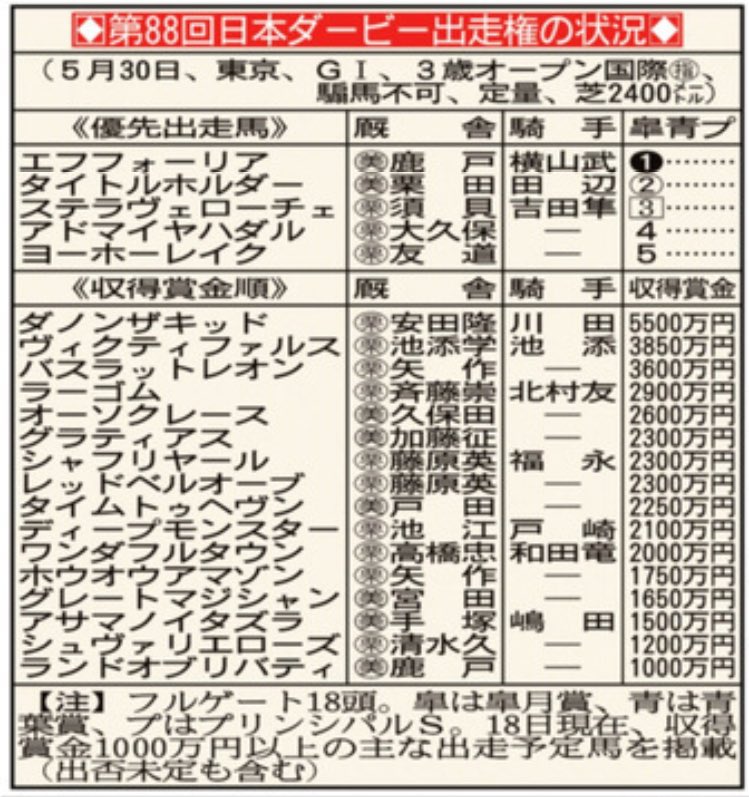 ◆第88回日本ダービー出走権の状況◆
（５月30日、東京、ＧⅠ、３歳オープン国際㊕、
騸馬不可、定量、芝2400㍍）
《優先出走馬》 厩舎 騎手 皐青プ
エフフォーリア ㊍鹿戸 横山武 ❶………
タイトルホルダー ㊍栗田 田辺 ②………
ステラヴェローチェ ㊍須貝 吉田隼 3………
アドマイヤハダル ㊍大久保 ― 4………
ヨーホーレイク ㊍友道 ― 5………
《収得賞金順》 厩舎 騎手 収得賞金
ダノンザキッド 安田隆 川田 5500万円
ヴィクティファルス 池添学 池添 3850万円
バスラットレオン 矢作 ― 3600万円
ラーゴム 斉藤崇 北村友 2900万円
オーソクレース 久保田 ― 2600万円
グラティアス 加藤征 ― 2300万円
シャフリヤール 藤原英 福永 2300万円
レッドベルオーブ 藤原英 ― 2300万円
タイムトゥヘヴン 戸田 ― 2250万円
ディープモンスター 池江 戸崎 2100万円
ワンダフルタウン 高橋忠 和田竜 2000万円
ホウオウアマゾン 矢作 ― 1750万円
グレートマジシャン 宮田 ― 1650万円
アサマノイタズラ 手塚 嶋田 1500万円
シュヴァリエローズ 清水久 ― 1200万円
ランドオブリバティ 鹿戸 ― 1000万円
【注】フルゲート18頭。皐は皐月賞、青は青
葉賞、プはプリンシパルＳ。18日現在、収得
賞金1000万円以上の主な出走予定馬を掲載
（出否未定も含む）